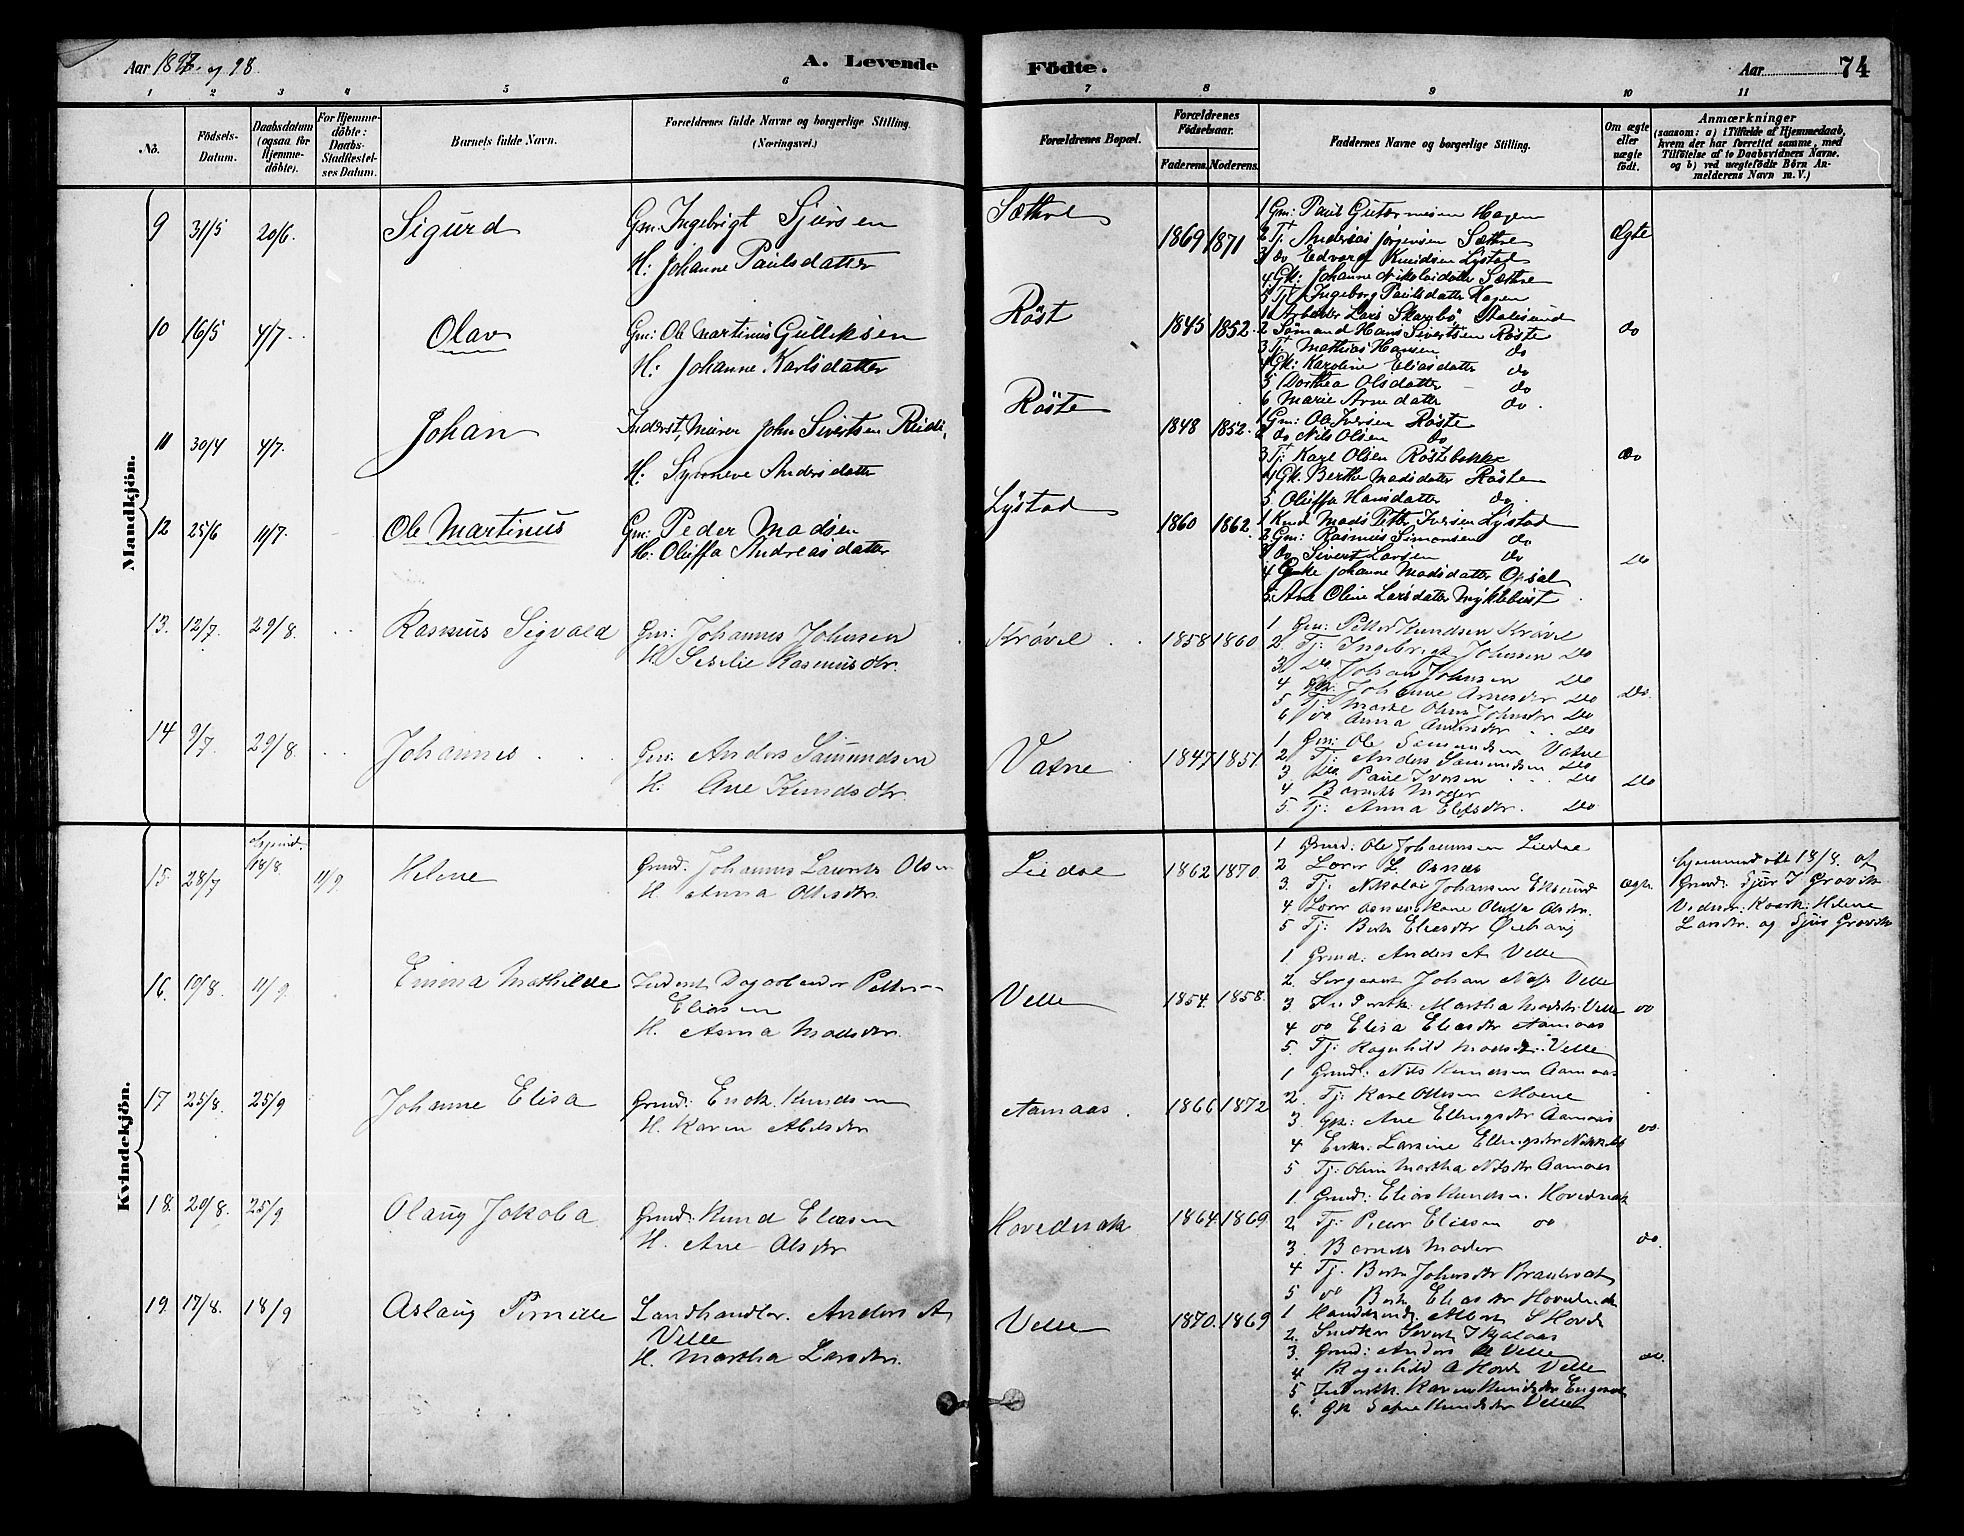 Aar 1897 og 98.
A. Levende
Födte.
Aar 74
1 2 3 4 5 6 7 8 9 10 11
No.
Födsels-Datum.
Daabsdatum (ogsaa for Hjemmedöbte).
For Hjemmedöbte: Daabs-Stadfæstelses Datum.
Barnets fulde Navn.
Forældrenes fulde Navne og borgerlige Stilling. (Næringsvei.)
Forældrenes Bopæl.
Forældrenes Födselsaar.
Faderens. Moderens.
Faddernes Navne og borgerlige Stilling.
Om ægte eller uægte födt.
Anmærkninger
(saasom: a) i Tilfælde af Hjemmedaab, hvem der har forrettet samme, med Tilföielse af to Daabsvidners Navne, og b) ved uægtefödte Börn Anmelderens Navn m. V.)
Mandkjön.
9 31/5 20/6. Sigurd Gm. Ingebrigt Sjursen
H: Johanne Paulsdatter
Sæthre 1869 1871 Ægte
1 Gm: Paul Guttormsen Hagen
2 Tj. Andreas Jørgensen Sæthre
3 do Edvard Knudsen Lystad
4 Gk: Johanne Nikolaidatter Sæthre
5 Tj. Ingeborg Paulsdatter Hagen
10 16/5 4/7. Olav Gm: Ole Martinus Gulliksen
H: Johanne Karlsdatter
Röst 1845 1852. do
1 Arbeider Lars Skarebö Aalesund
2 Sömand Hans Sivertsen Röste
3 Tj. Mathias Hansen do
4 Gk: Karoline Eliasdatter do
5 Dorthea Olsdatter do
6 Marie Arnedatter do.
11 30/4 4/7. Johan Inderst, Murer John Sivertsen
H: Synneve Andersdatter
Röste 1848 1852. do
1 Gm: Ole Iversen Röste
2 do Nils Olsen do
3 Tj. Karl Olsen Röstebakke
4 Gk. Berthe Madsdatter Röste
5 Oluffa Hansdatter do.
12 25/6 11/7. Ole Martinus Gm: Peder Madsen
H: Oluffa Andreasdatter
Lystad 1860 1862. Do
1 Mads Petter Iversen Lystad
2 Gm: Rasmus Simonsen do
3 do Sivert Larsen do
4 Johanne Madsdatter Opsal
5. Ane Oline Larsdatter Myklebust
13. 12/7. 29/8. Rasmus Sigvald Gm: Johannes Johnsen
H. Sesilie Rasmusdtr.
Krövel 1858 1860 Do.
1 Gm: Petter Knudsen Krövel
2. Tj. Ingebrigt Johnsen Do
3 Do. Johan Johnsen Do
4 Gk: Johanne Arnesdtr Do
5 Tj Marte Oline Johnsdtr Do
6 do Anna Andersdtr Do
14 9/7. 29/8. Johannes Gm: Anders Samundsen
H: Ane Knudsdtr.
Vatne 1847 1851. Do
1. Gm: Ole Samundsen Vatne
2 Tj: Anders Samundsen Do
3 Do. Paul Iversen Do
4 Barnets Moder
5. Tj: Anna Eliasdtr. Do
Kvindekjön.
15. 28/7 18/8. 11/9. Helene Grund: Johannes Laurits Olsen
H. Anna Olsdtr.
Liedøe 1862 1870. Ægte
1 Grund: Ole Johannesen Liedøe
2 Lærer L. Osnæs
3. Tj. Nikolai Johansen Eksund
4 Lærer Osnæs Kone Oluffa Olsdtr.
5 Tj. Berte Eliasdtr Ørehaug
hjemmedöbt 18/8. af
Grund: Sjur I Grovik
Vidner: Helene
Larsdtr. og Sjur Grovik
16. 19/8. 11/9. Emma Mathilde Inderst Dagarbeider Petter
Eliasen
H. Anna Madsdtr.
Velle 1854. 1858. do
1 Grund: Anders A. Velle
2. Sergeant Johan Velle
3 Martha Madsdtr. Velle
4 do Elisa Eliasdtr Aamaas
5. Tj: Ragnhild Madsdtr. Velle
17 25/8. 25/9 Johanne Elisa Grund: Erik Knudsen
H. Karen Abelsdtr
Aamaas. 1866 1872 do.
1 Grund: Nils Knudsen Aamaas
2. Tj: Karl Olsen Moene
3. Gk: Ane Ellingsdtr Aamaas
4 Enke: Larsine Ellingsdtr
5 Tj: Oline Martha Nilsdtr Aamaas
18. 20/8. 25/9 Olaug Jokoba Grund: Knud Eliasen
H. Ane Olsdtr
Hovednak 1864. 1869 do.
1. Grund: Elias Knudsen Hovednak
2. Tj: Peter Eliasen do
3. Barnets Moder
4 Tj. Berte Johansdtr
5 do Berte Eliasdtr Hovednak
19. 17/8. 18/9 Aslaug Pernille Landhandler. Anders A
Velle
H. Martha Larsdtr.
Velle 1870. 1869 do.
1 Albert S Hovde
2. Snedker Sivert
3. Grund: Anders A Velle
4 Ragnhild A Hovde Velle
5 Karen Knudsdtr
6. Gk Knudsdtr Velle